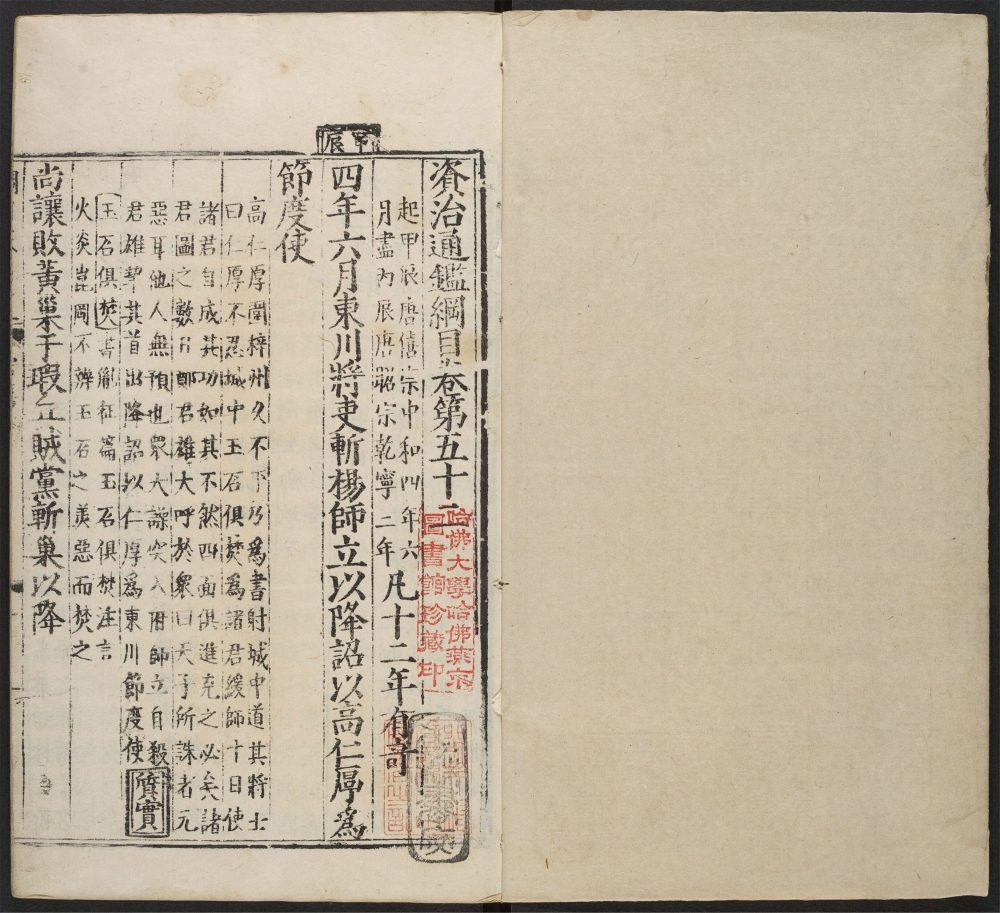 甲辰
資治通鑑綱目卷第五十二
起甲辰唐僖宗中和四年六
月盡丙辰唐昭宗乾寧二年
凡十二年有奇
四年六月東川將吏斬楊師立以降詔以高仁厚為
節度使
高仁厚圍梓州久不下乃為書射城中道其將士
曰仁厚不忍城中玉石俱焚為諸君緩師十日使
諸君自成其功如其不然四面俱進克之必矣諸
君圖之數日鄭君雄大呼於衆曰天子所誅者元
惡耳他人無預也衆大譟突入府師立自殺
君雄挈其首出降詔以仁厚為東川節度使
質實
玉石俱焚書胤征篇玉石俱焚注言
火炎崑岡不辨玉石之美惡而焚之
尚讓敗黃巢于瑕丘賊黨斬巢以降
哈佛大學哈佛燕京
圖書館珍藏印